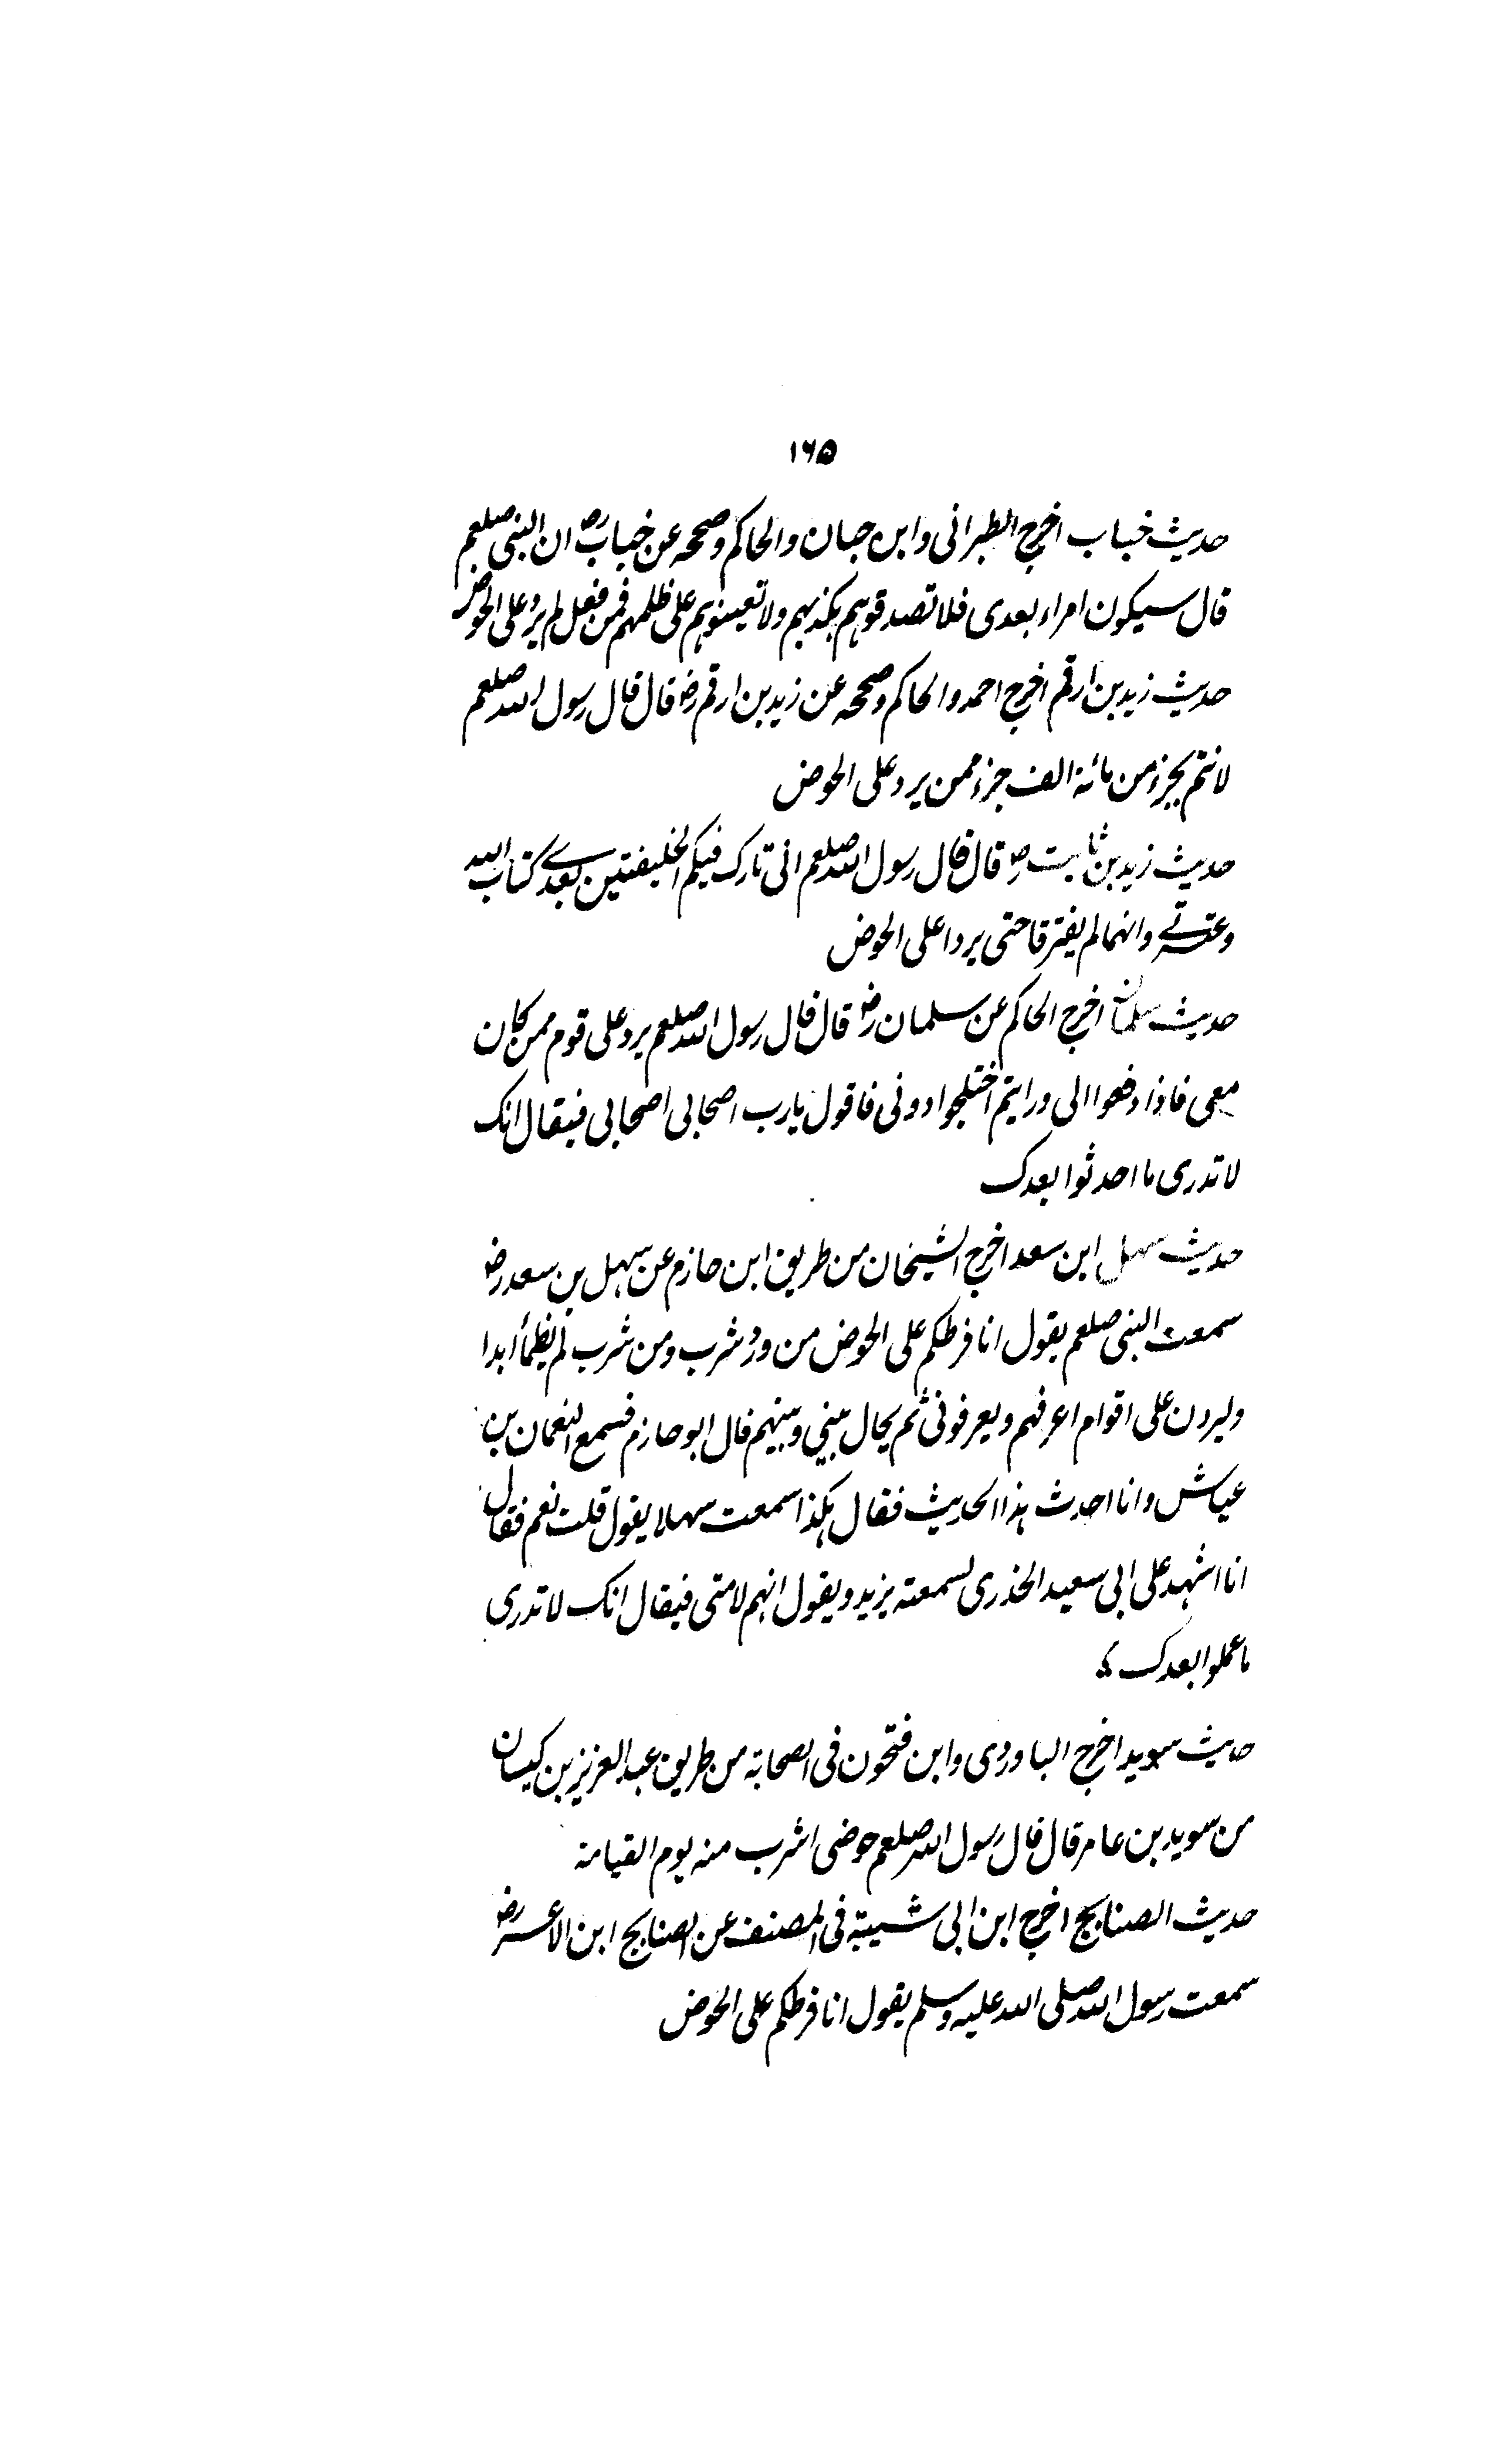 ۱۶۵
حدیث خباب اخرج الطبرانی وابن حبان والحاکم وصححہ عن خباب رض ان النبی صلعم
قال سیکون امراء بعدی فلا تصدقوہم بکذبہم ولا تعینوہم علی ظلمہم فمن فعل لم یرد علی الحوض
حدیث زید بن ارقم اخرج احمد والحاکم وصححہ عن زید بن ارقم رض قال قال رسول اللہ صلعم
لانتم بجزء من مائۃ الف جزء ممن یرد علی الحوض
حدیث زید بن ثابت رض قال قال رسول اللہ صلعم انی تارک فیکم الخلیفتین بعدے کتاب اللہ
وعترتے وانہما لم یفترقا حتی یردا علی الحوض
حدیث سلمان اخرج الحاکم عن سلمان رض قال قال رسول اللہ صلعم یرد علی قوم ممن کان
معی فاذا رفعوا الی ورایتم اختلجوا دونی فاقول یارب اصحابی اصحابی فیقال انک
لا تدری ما احدثوا بعدک
حدیث سہل ابن سعد اخرج الشیخان من طریق ابن حازم عن سہل بن سعد رض
سمعت النبی صلعم یقول انا فرطکم علی الحوض من ورد شرب ومن شرب لم یظمأ ابدا
ولیردن علی اقوام اعرفہم ویعرفونی ثم یحال بینی وبینہم قال ابو حازم فسمع النعمان بن
عیاش وانا احدث ہذا الحدیث فقال ہکذا سمعت سہلا یقول قلت نعم فقال
انا اشہد علی ابی سعید الخدری لسمعتہ یزید ویقول انہم لامتی فیقال انک لا تدری
ما عملوا بعدک
حدیث سوید اخرج الباوردی وابن فتحون فی الصحابۃ من طریق عبدالعزیز بن کیسان
من سوید بن عامر قال قال رسول اللہ صلعم حوضی اشرب منہ یوم القیامۃ
حدیث الصنابح اخرج ابن ابی شیبۃ فی المصنف عن الصنابح ابن الاعسر رض
سمعت رسول اللہ صلی اللہ علیہ وسلم یقول انا فرطکم علی الحوض